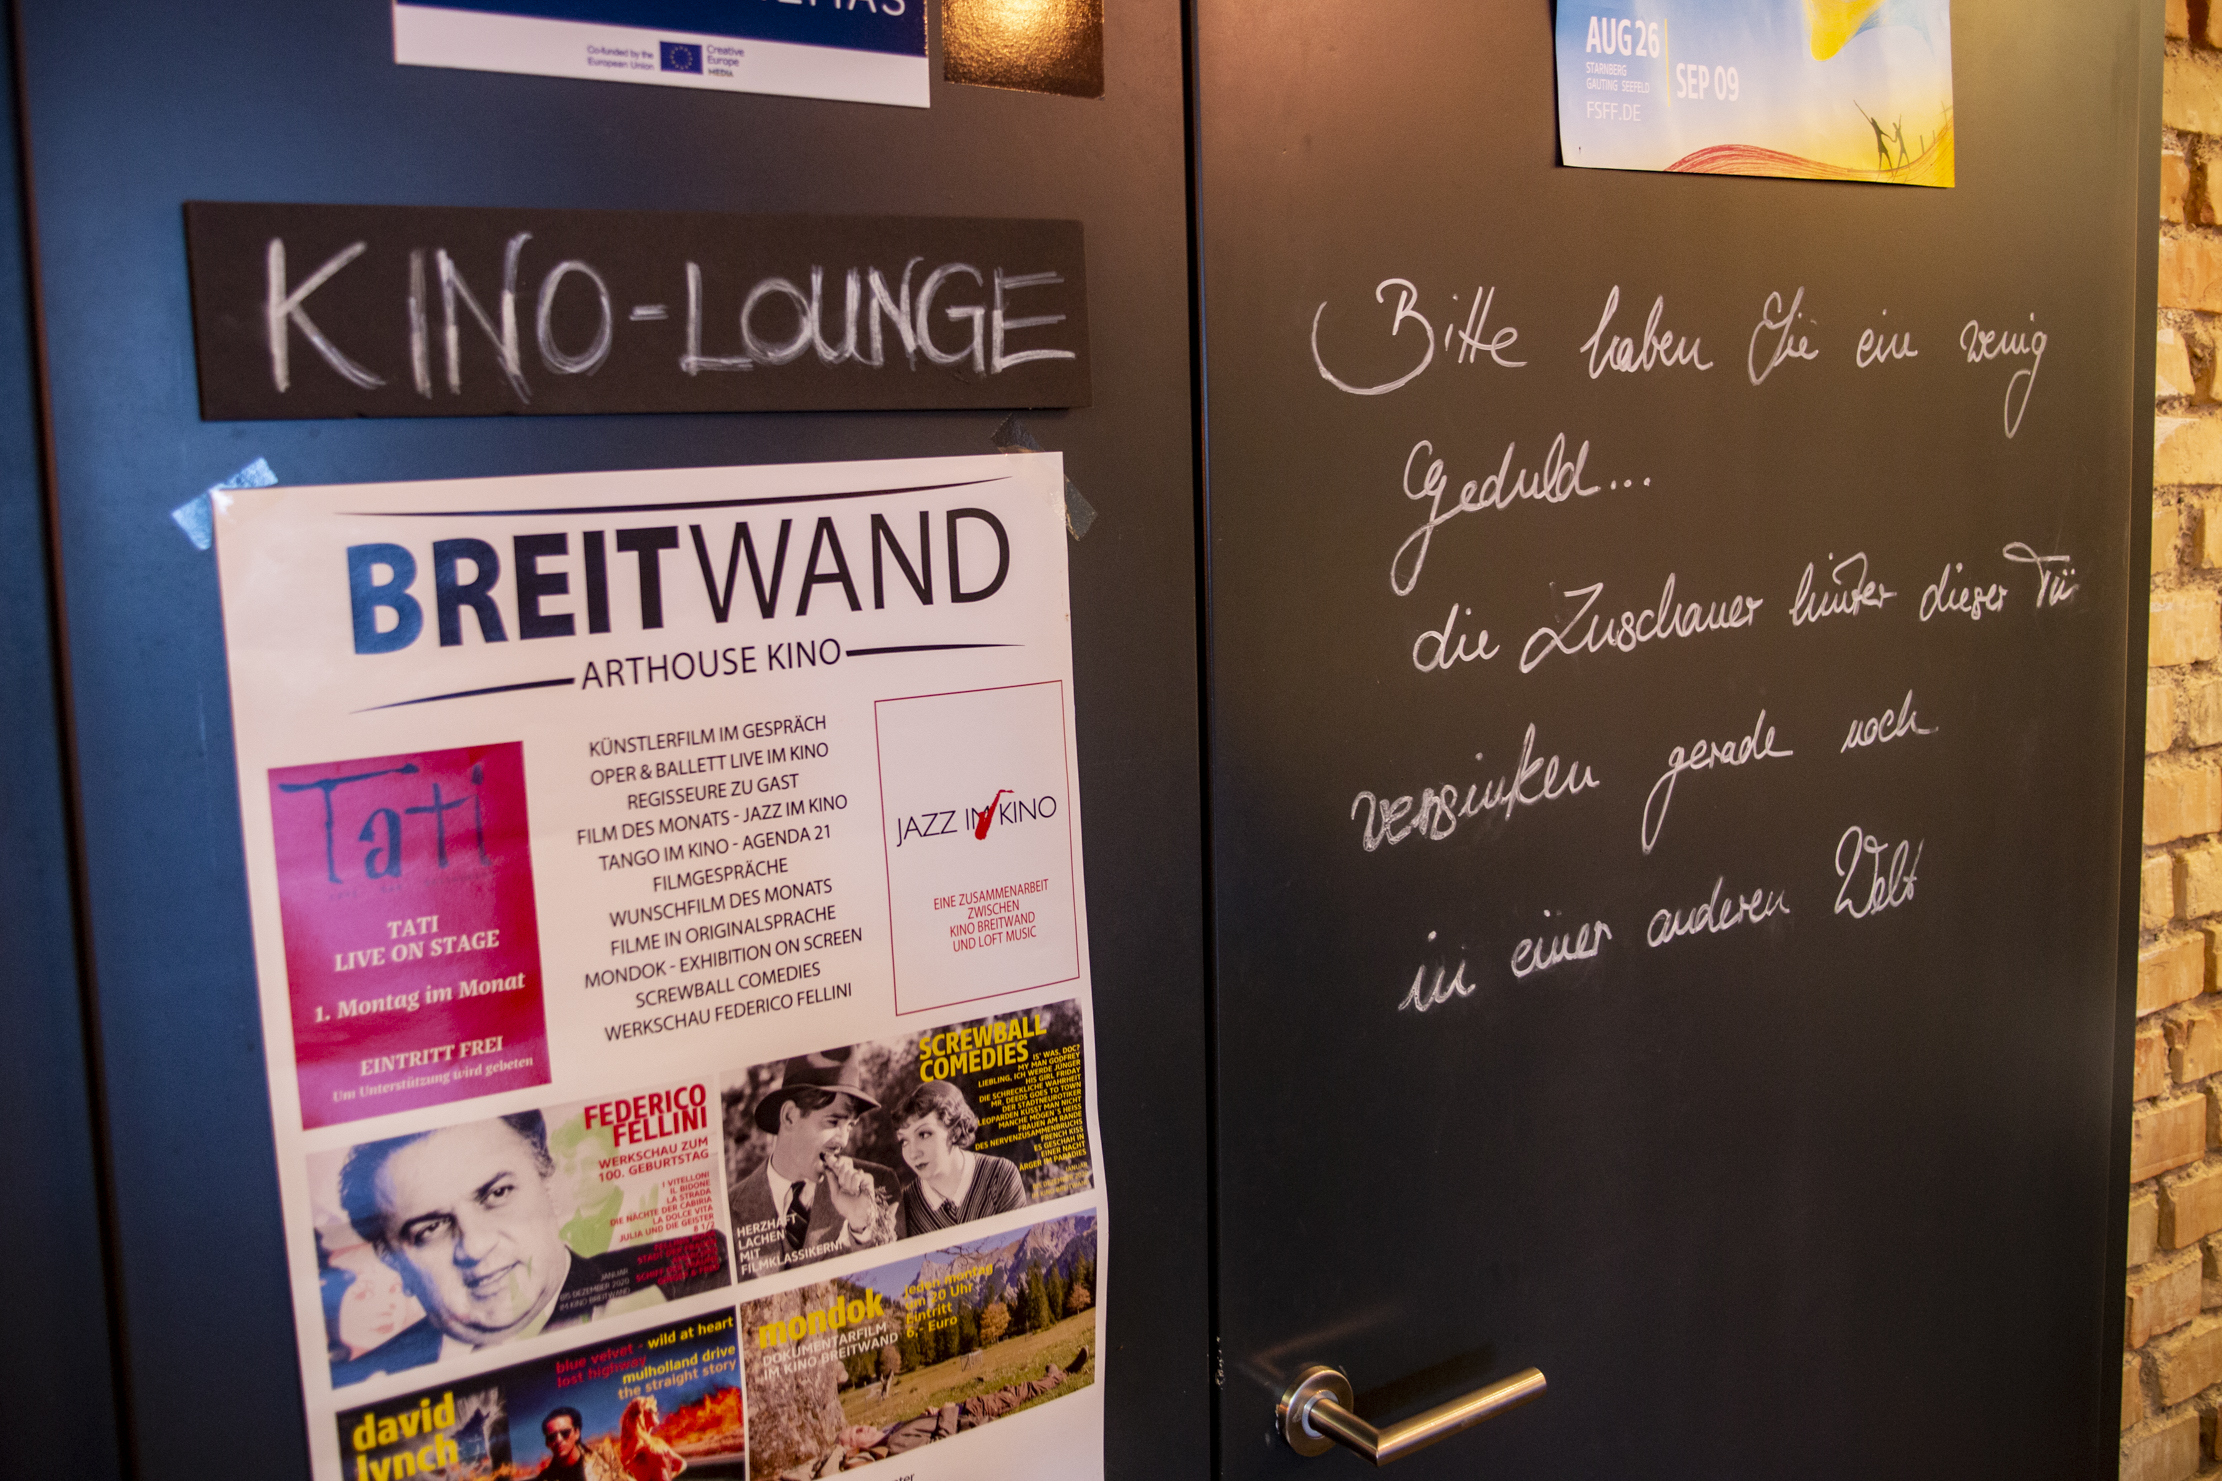 Co-funded by the
European Union
Creative
Europe
MEDIA
AUG 26
STARNBERG
GAUTING SEEFELD
SEP 09
FSFF.DE
KINO-LOUNGE
Bitte haben Sie ein wenig
Geduld...
die Zuschauer hinter dieser Tü
versinken gerade noch
in einer anderen Welt
BREITWAND
ARTHOUSE KINO
KÜNSTLERFILM IM GESPRÄCH
OPER & BALLETT LIVE IM KINO
REGISSEURE ZU GAST
FILM DES MONATS - JAZZ IM KINO
TANGO IM KINO - AGENDA 21
FILMGESPRÄCHE
WUNSCHFILM DES MONATS
FILME IN ORIGINALSPRACHE
MONDOK - EXHIBITION ON SCREEN
SCREWBALL COMEDIES
WERKSCHAU FEDERICO FELLINI
Tati
TATI
LIVE ON STAGE
1. Montag im Monat
EINTRITT FREI
Um Unterstützung wird gebeten
JAZZ IM KINO
EINE ZUSAMMENARBEIT
ZWISCHEN
KINO BREITWAND
UND LOFT MUSIC
FEDERICO
FELLINI
WERKSCHAU ZUM
100. GEBURTSTAG
I VITELLONI
IL BIDONE
LA STRADA
DIE NÄCHTE DER CABIRIA
LA DOLCE VITA
JULIA UND DIE GEISTER
8 1/2
JANUAR
BIS DEZEMBER 2020
IM KINO BREITWAND
SCREWBALL
COMEDIES
IS' WAS, DOC?
MY MAN GODFREY
LIEBLING, ICH WERDE JÜNGER
HIS GIRL FRIDAY
DIE SCHRECKLICHE WAHRHEIT
MR. DEEDS GOES TO TOWN
DER STADTNEUROTIKER
LEOPARDEN KÜSST MAN NICHT
MANCHE MÖGEN'S HEISS
FRAUEN AM RANDE
DES NERVENZUSAMMENBRUCHS
FRENCH KISS
ES GESCHAH IN
EINER NACHT
ÄRGER IM PARADIES
JANUAR
BIS DEZEMBER 2020
IM KINO BREITWAND
HERZHAFT
LACHEN
MIT
FILMKLASSIKERN!
david
lynch
blue velvet - wild at heart
lost highway
mulholland drive
the straight story
mondok
DOKUMENTARFILM
IM KINO BREITWAND
jeden montag
um 20 Uhr
Eintritt
6,- Euro